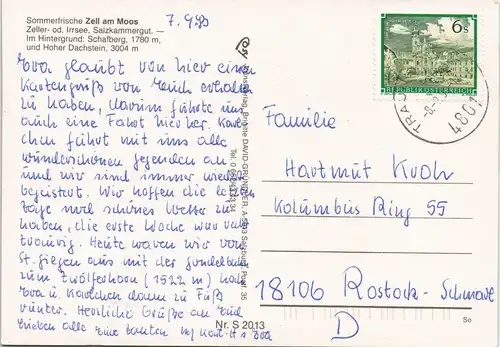 Sommerfrische Zell am Moos
Zeller- od. Irrsee, Salzkammergut. —
Im Hintergrund: Schafberg, 1780 m,
und Hoher Dachstein, 3004 m
7.9.
Eva glaubt von hier einen
Kartengruß von Euch erhalten
zu haben, darum führte uns
auch eine Fahrt hierher.
chen führt mit uns alle
wunderschönen Gegenden an
und wir sind immer wieder
begeistert. Wir hoffen die letzten
Tage noch schönes Wetter zu
haben, die erste Woche war sehr
traurig. Heute waren wir von
St. Gilgen aus mit der Gondelbahn
zum Zwölferhorn (1522 m) nach
Eva u. dann zu Fuß
runter. Herzliche Grüße an Euch
Lieben alle Eure Eva
Kunstverlag Brigitte DAVID-GRÜNDLER, A-5033 Salzburg, Postf. 36
Tel.
Nr. S 2013
6 S
REPUBLIK ÖSTERREICH
4801
TRAU
Familie
Hartmut Kroh
Kolumbus Ring 55
18106 Rostock-Schmarl
D
So